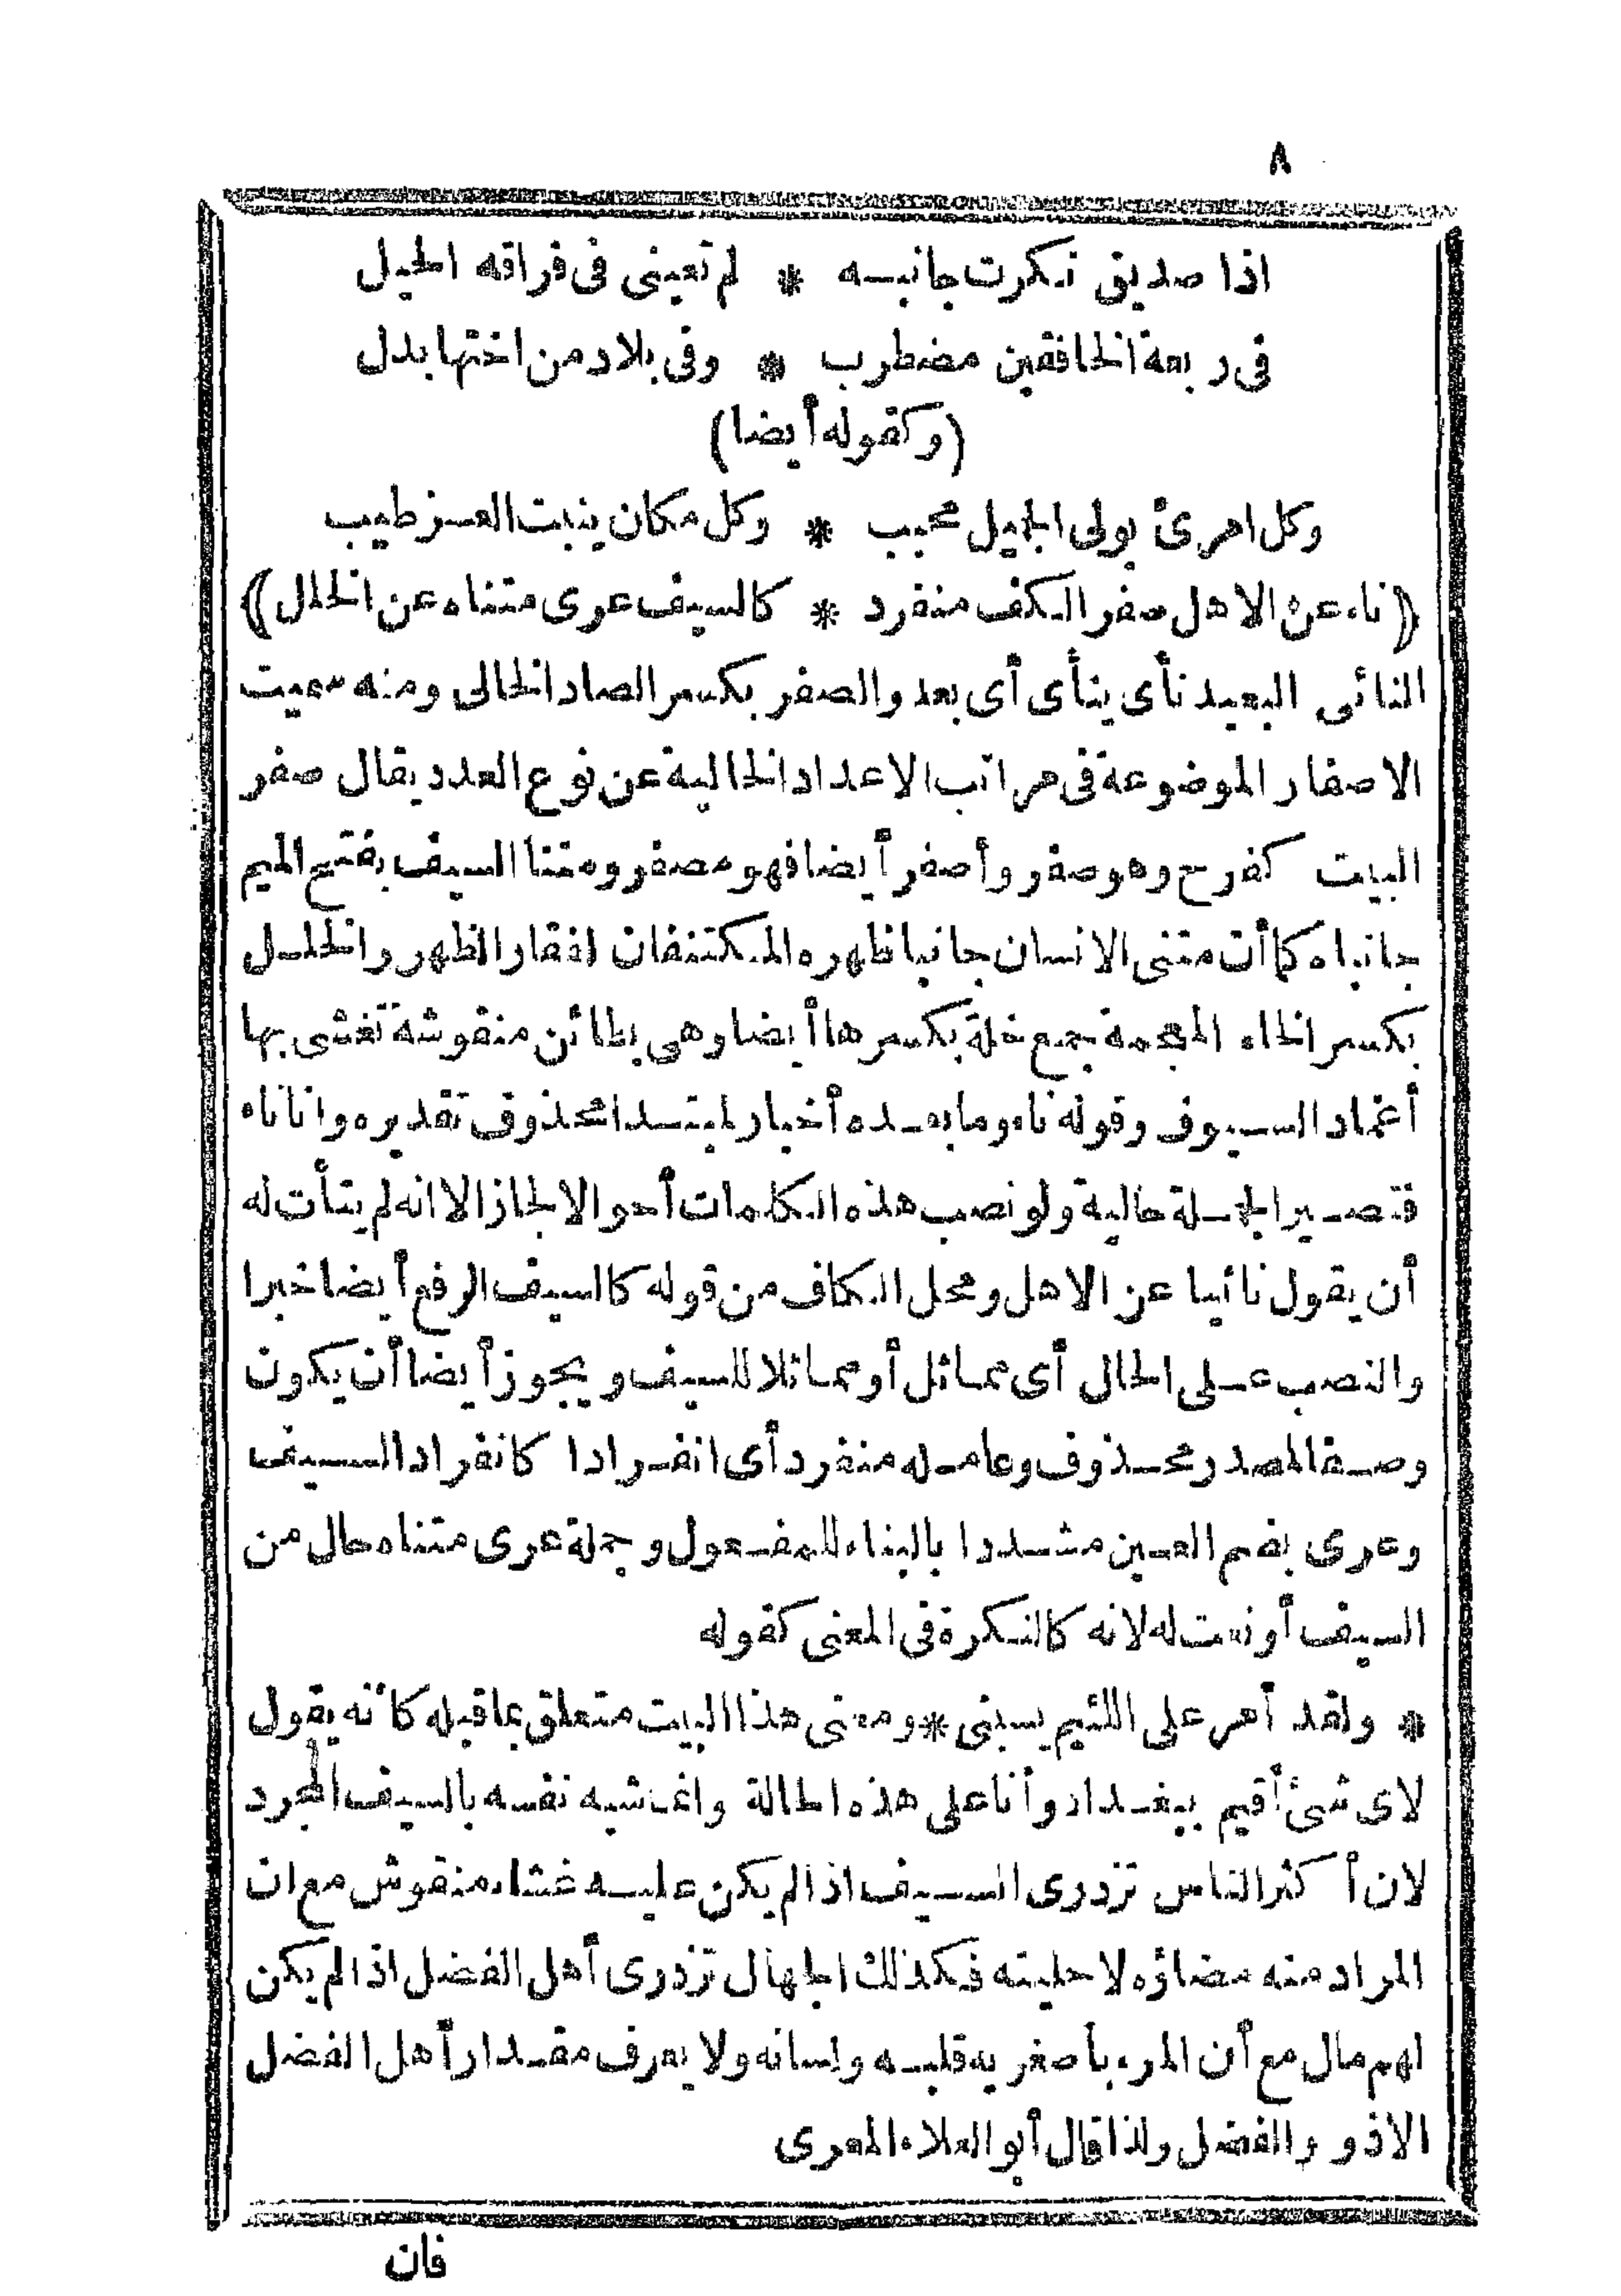 ٨
اذا صديق نكرت جانبه * لم تعينى فى فراقه الحيل
فى سعة الخافقين مضطرب * وفى بلاد من اختها بدل
(وكقوله أيضا)
وكل امرئ يولى الجميل محبب * وكل مكان ينبت العز طيب
﴿ناء عن الاهل صفر الكف منفرد * كالسيف عرى متناه عن الخلل﴾
النائى البعيد نأى ينأى أى بعد والصفر بكسر الصاد الخالى ومنه سميت
الاصفار الموضوعة فى مراتب الاعداد الخالية عن نوع العدد يقال صفر
البيت كفرح وهو صفر وأصفر أيضا فهو مصفر ومتنا السيف بفتح الميم
جانباه كما أن متنى الانسان جانبا ظهره المكتنفان لفقار الظهر والخلل
بكسر الخاء المعجمة جمع خلة بكسرها أيضا وهى بطائن منقوشة تغشى بها
أغماد السيوف وقوله ناء وما بعده أخبار لمبتدا محذوف تقديره وانا ناء
فتصير الجملة حالية ولو نصب هذه الكلمات أحوالا لجاز الا انه لم يتأت له
أن يقول نائيا عن الاهل ومحل الكاف من قوله كالسيف الرفع أيضا خبرا
والنصب على الحال أى مماثل أو مماثلا للسيف ويجوز أيضا أن يكون
وصفا لمصدر محذوف وعامله منفرد أى انفرادا كانفراد السيف
وعرى بضم العين مشددا بالبناء للمفعول وجملة عرى متناه حال من
السيف أو نعت له لانه كالنكرة فى المعنى كقوله
* ولقد أمر على اللئيم يسبنى * ومعنى هذا البيت متعلق بما قبله كأنه يقول
لاى شئ أقيم ببغداد وأنا على هذه الحالة وانما شبه نفسه بالسيف المجرد
لان أكثر الناس تزدرى السيف اذا لم يكن عليه غشاء منقوش مع ان
المراد منه مضاؤه لا حليته فكذلك الجهال تزدرى أهل الفضل اذا لم يكن
لهم مال مع أن المرء بأصغريه قلبه ولسانه ولا يعرف مقدار أهل الفضل
الا ذو والفضل ولذا قال أبو العلاء المعرى
فان